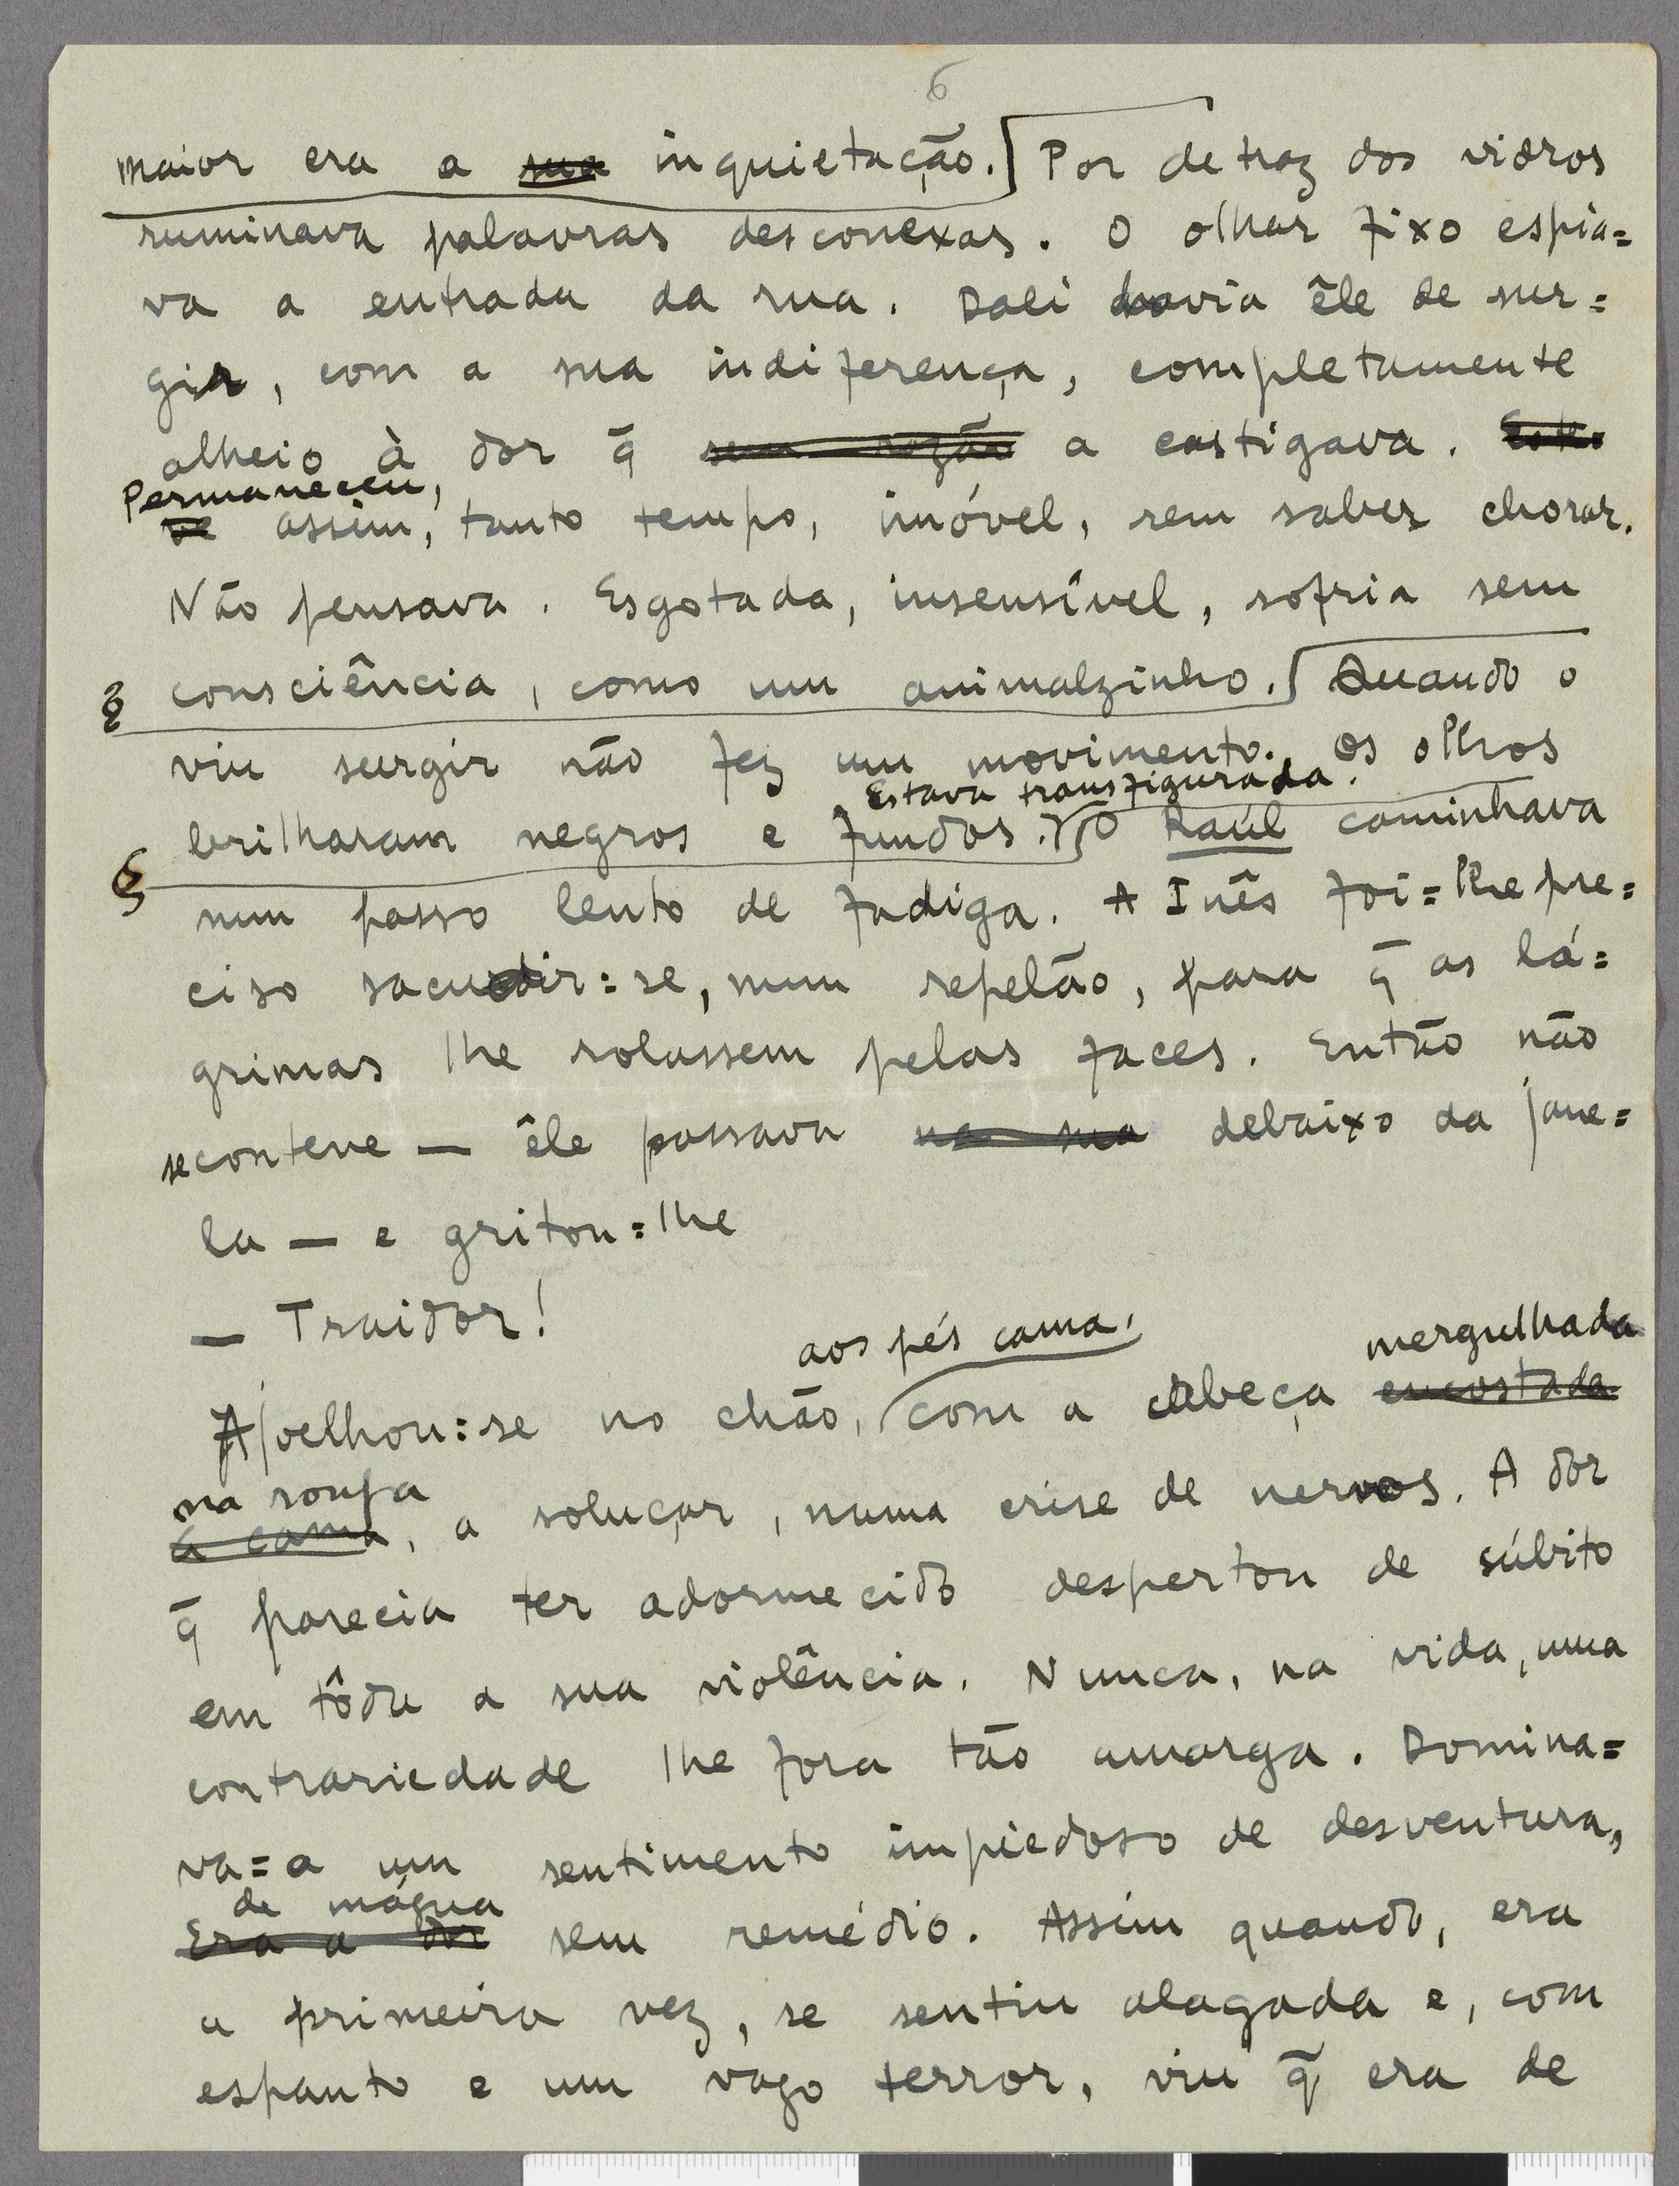 6
maior era a ~~sua~~ inquietação. Por detraz dos vidros
ruminava palavras desconexas. O olhar fixo espia=
va a entrada da rua. Dali havia êle de sur=
gir, com a sua indiferença, completamente
alheio à dor q̃ ~~sem razão~~ a castigava. ~~Este~~
Permaneceu,
~~ve~~ assim, tanto tempo, imóvel, sem saber chorar.
Não pensava. Esgotada, insensível, sofria sem
consciência, como um animalzinho. Quando o
viu surgir não fez um movimento. Os olhos
Estava transfigurada.
brilharam negros e fundos. O Raúl caminhava
num passo lento de fadiga. A Inês foi=lhe pre=
ciso sacudir=se, num repelão, para q̃ as lá=
grimas lhe rolassem pelas faces. Então não
se conteve — êle passava ~~na rua~~ debaixo da jane=
la — e gritou=lhe
— Traidor!
aos pés cama, mergulhada
Ajoelhou=se no chão, com a cabeça ~~encostada~~
na roupa
~~à cama~~, a soluçar, numa crise de nervos. A dor
q̃ parecia ter adormecido despertou de súbito
em tôda a sua violência. Nunca, na vida, uma
contrariedade lhe fora tão amarga. Domina=
va=a um sentimento impiedoso de desventura,
de mágua
~~Era a dor~~ sem remédio. Assim quando, era
a primeira vez, se sentiu alagada e, com
espanto e um vago terror, viu q̃ era de